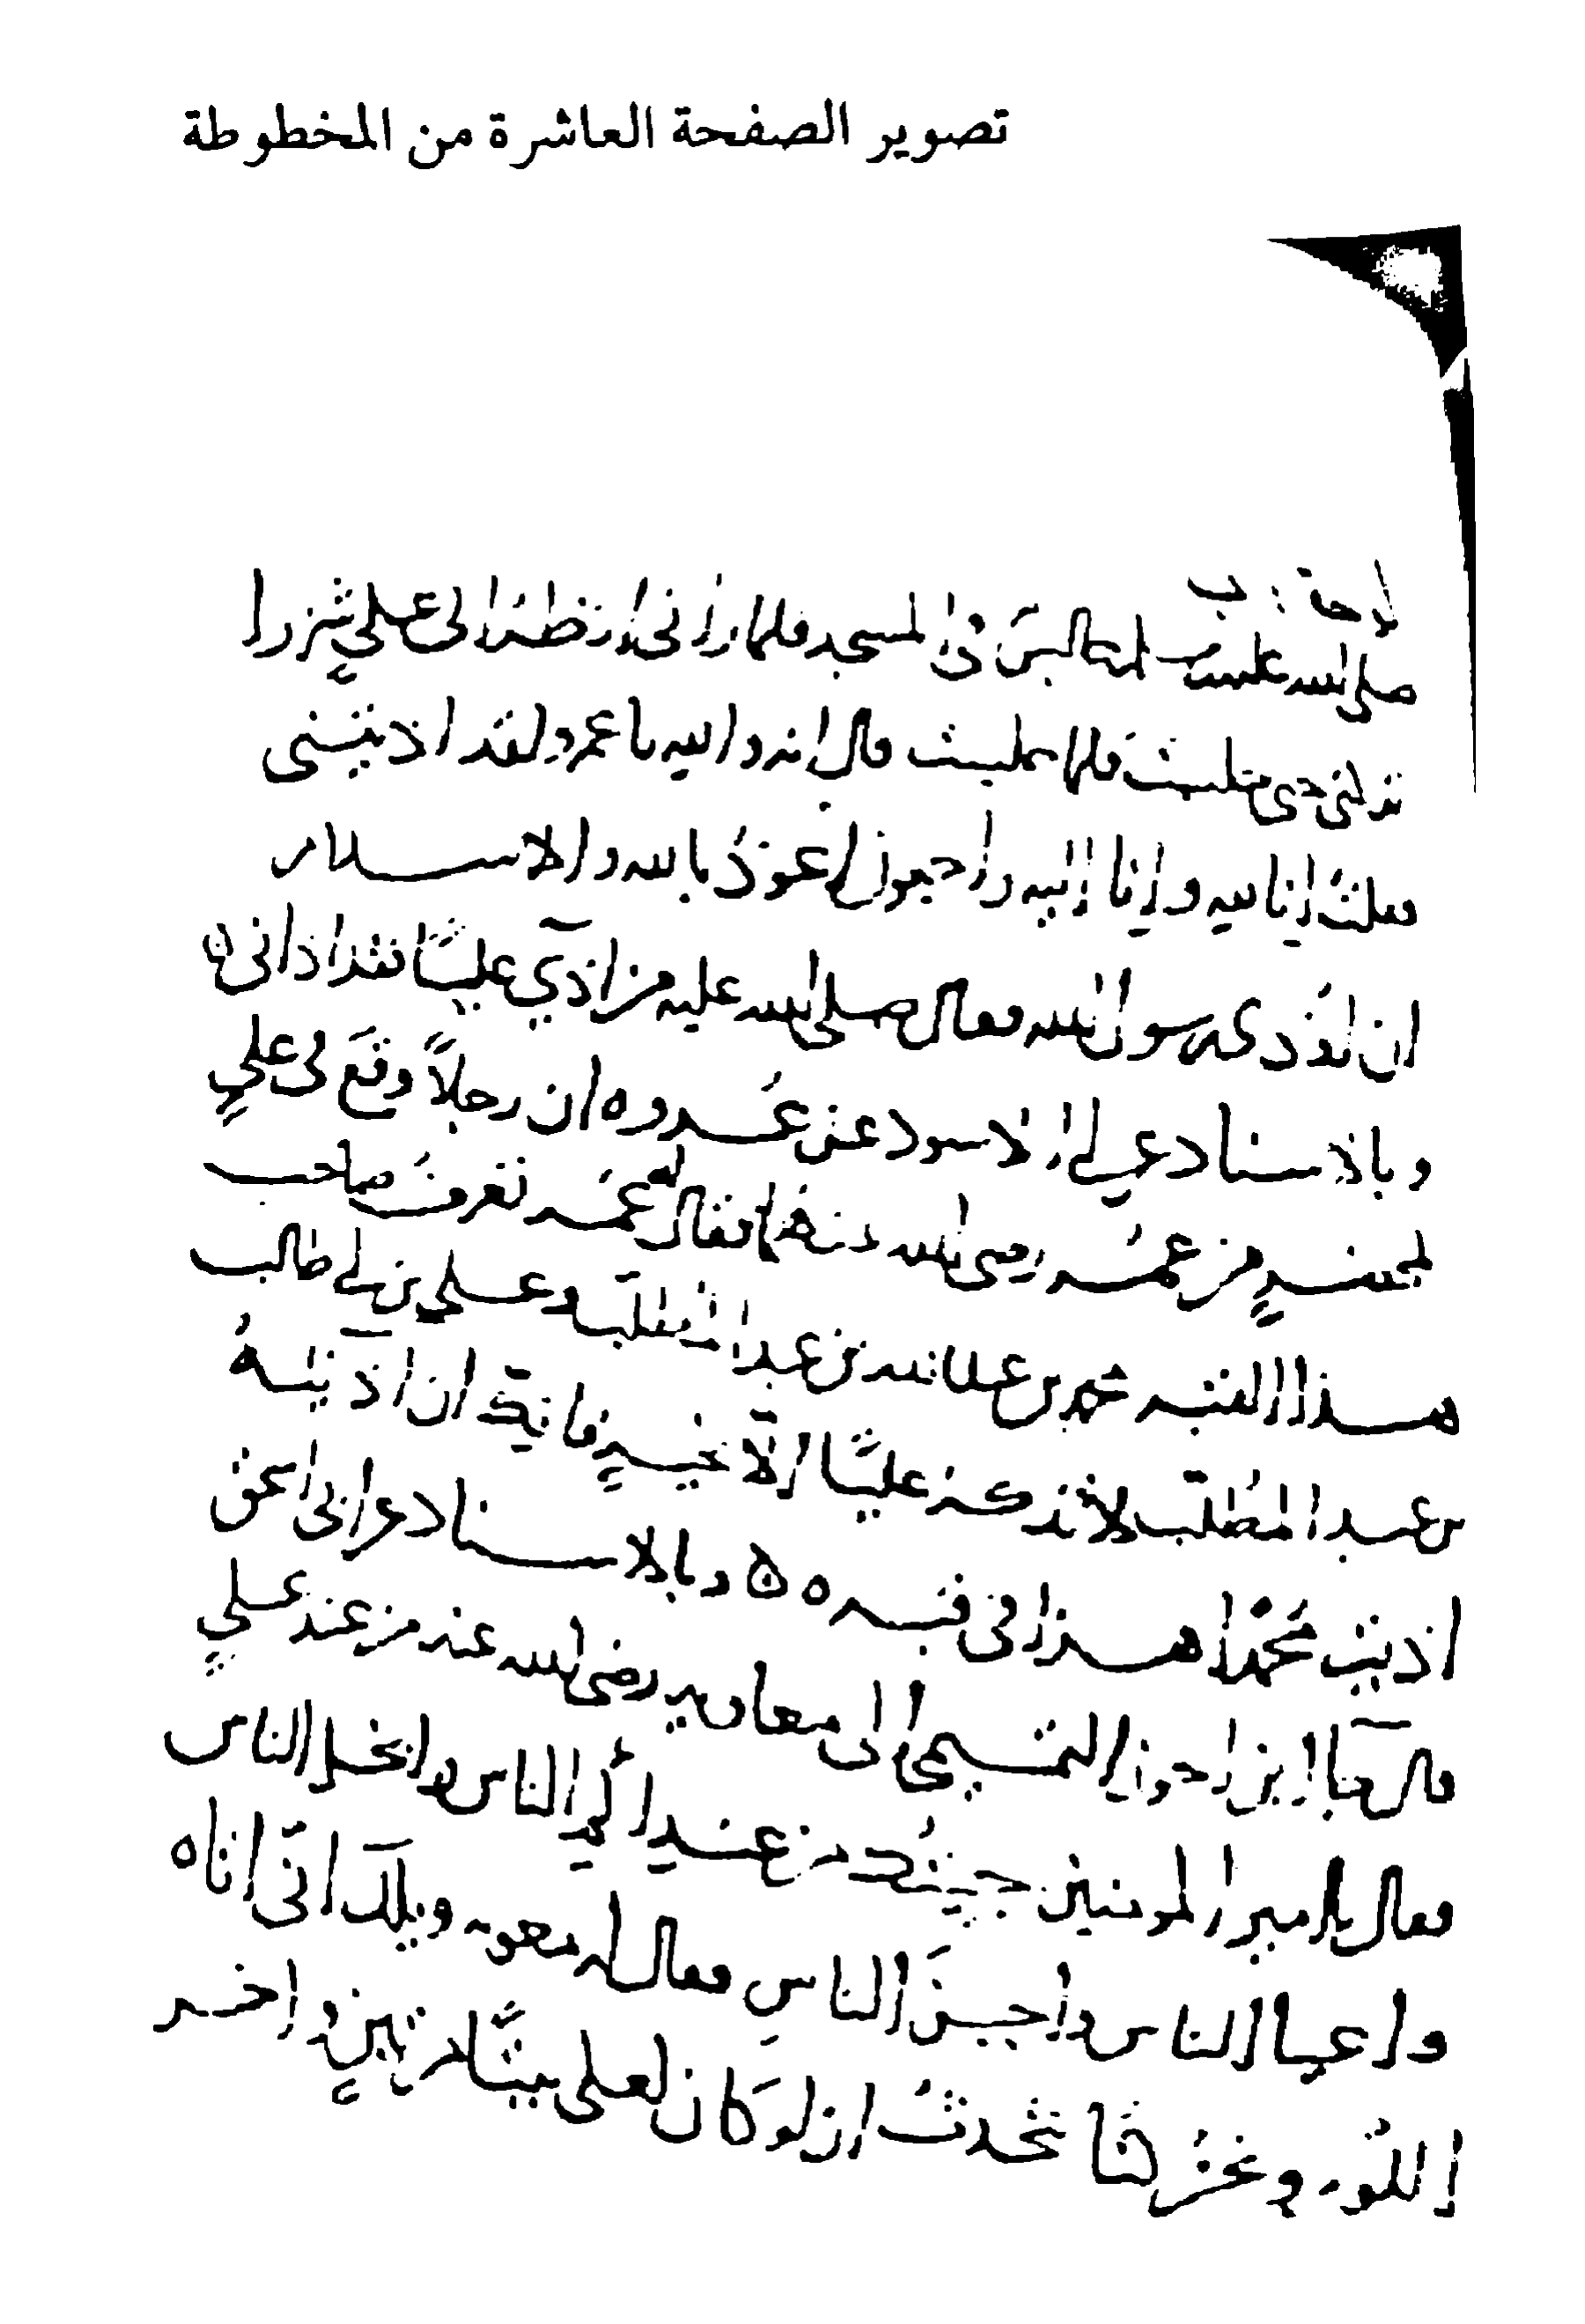 تصوير الصفحة العاشرة من المخطوطة
صلى الله عليه جالس في المسجد فلما راني نظر الى علي شزرا
حتى جلست فلما جلست قال انه والله يا عمرو لقد اذيتني
فقلت انا لله وانا اليه راجعون اعوذ بالله والاسلام
ان اوذي رسول الله فقال صلى الله عليه من اذي عليا فقد اذاني
وبالاسناد عن ابي الاسود عن عروه ان رجلا وقع في علي
بمحضر من عمر رضي الله عنهما فقال له عمر تعرف صاحب
هذا القبر محمد بن عبد الله بن عبد المطلب وعلي بن ابي طالب
بن عبد المطلب لا تذكر عليا الا بخير فانك ان اذيته
اذيت محمدا هذا في قبره ه وبالاسناد عن ابي اسحق
قال جا ابن احوز التميمي الى معاويه رضي الله عنه من عند علي
فقال يا امير المومنين جيتك من عند الام الناس وابخل الناس
واعيا الناس واجبن الناس فقال له معويه ويلك انى اتاه
اللوم ونحن كنا نتحدث ان لو كان لعلي بيتا من تبن واخر